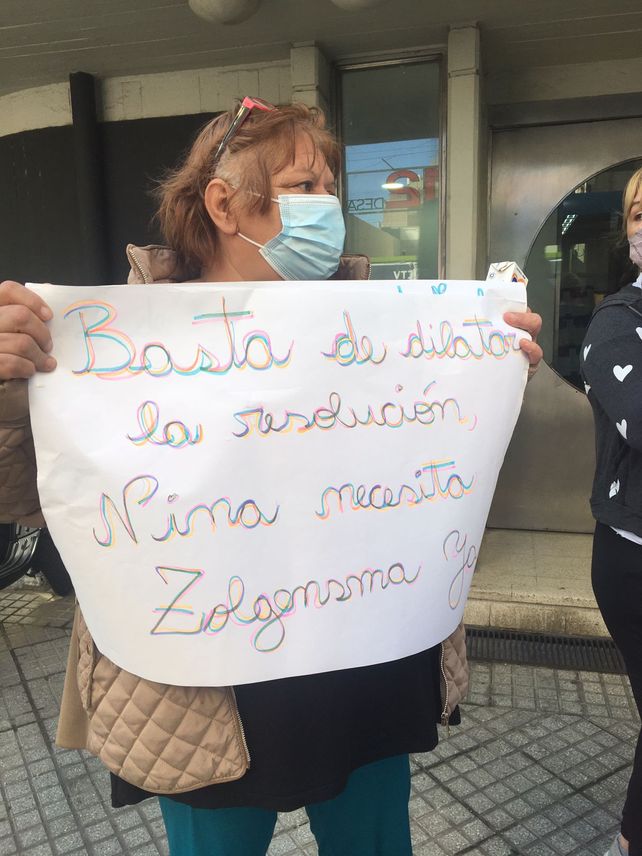 Basta de dilatar
la resolución,
Nina necesita
Zolgensma Ya